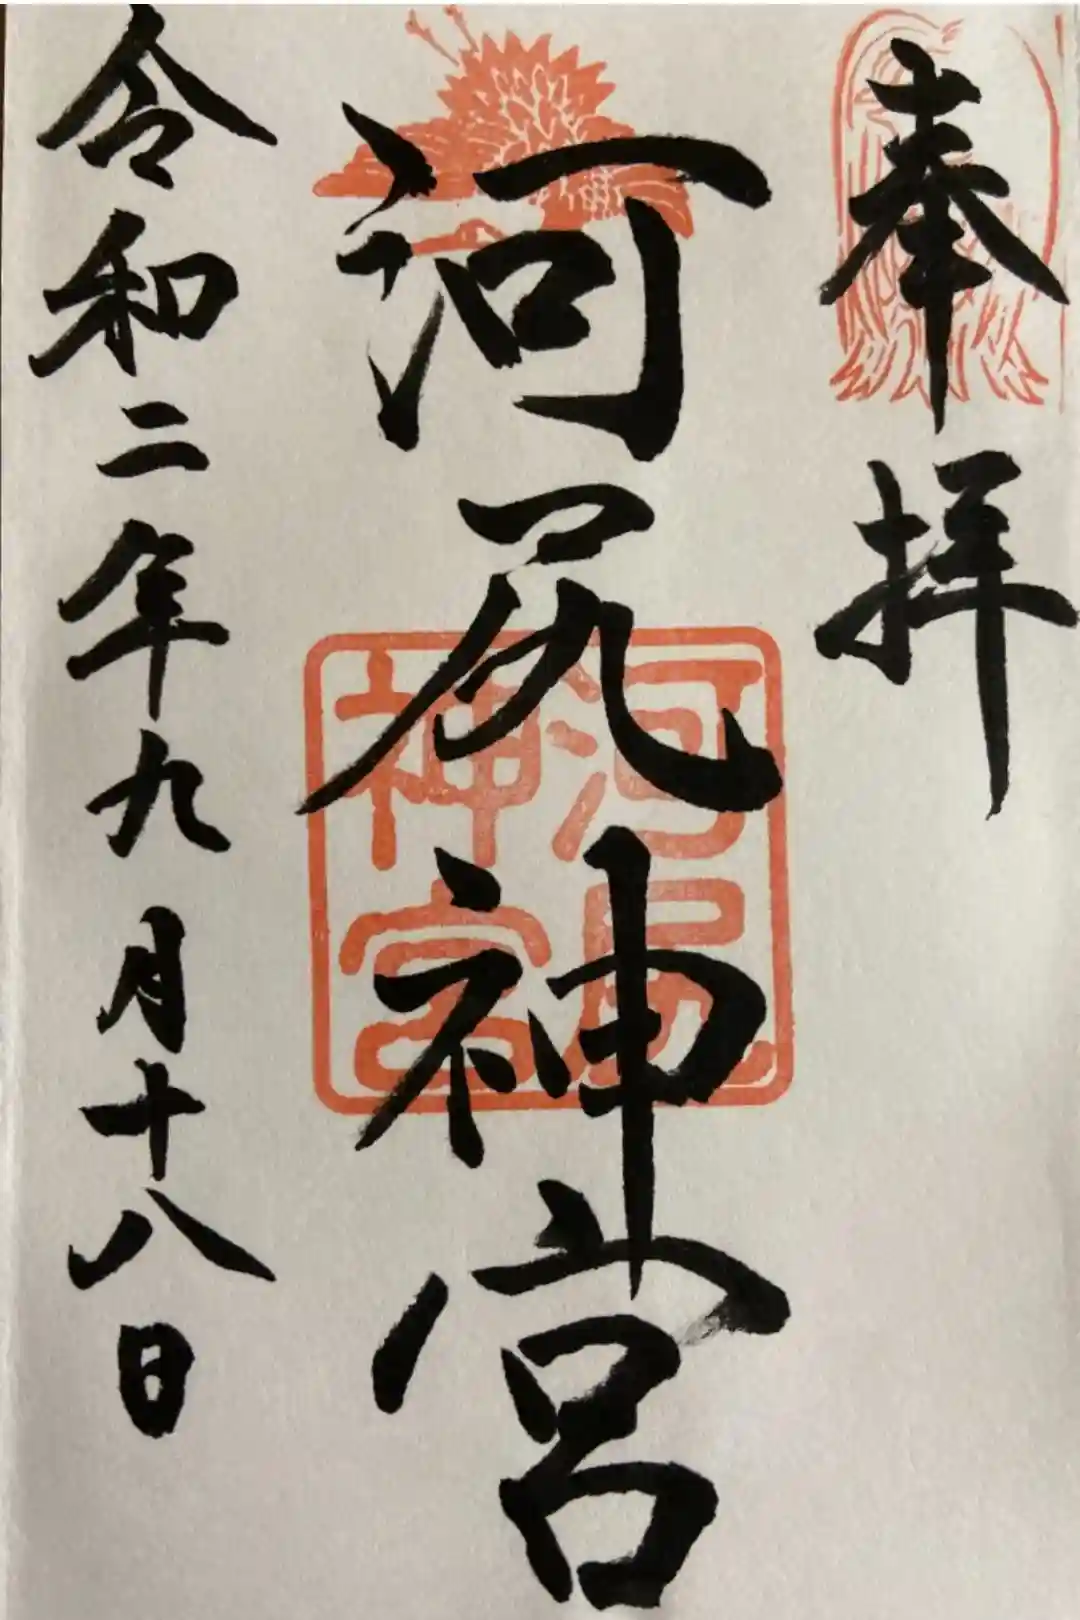 奉拝
河尻神宮
河尻神宮
令和二年九月十八日